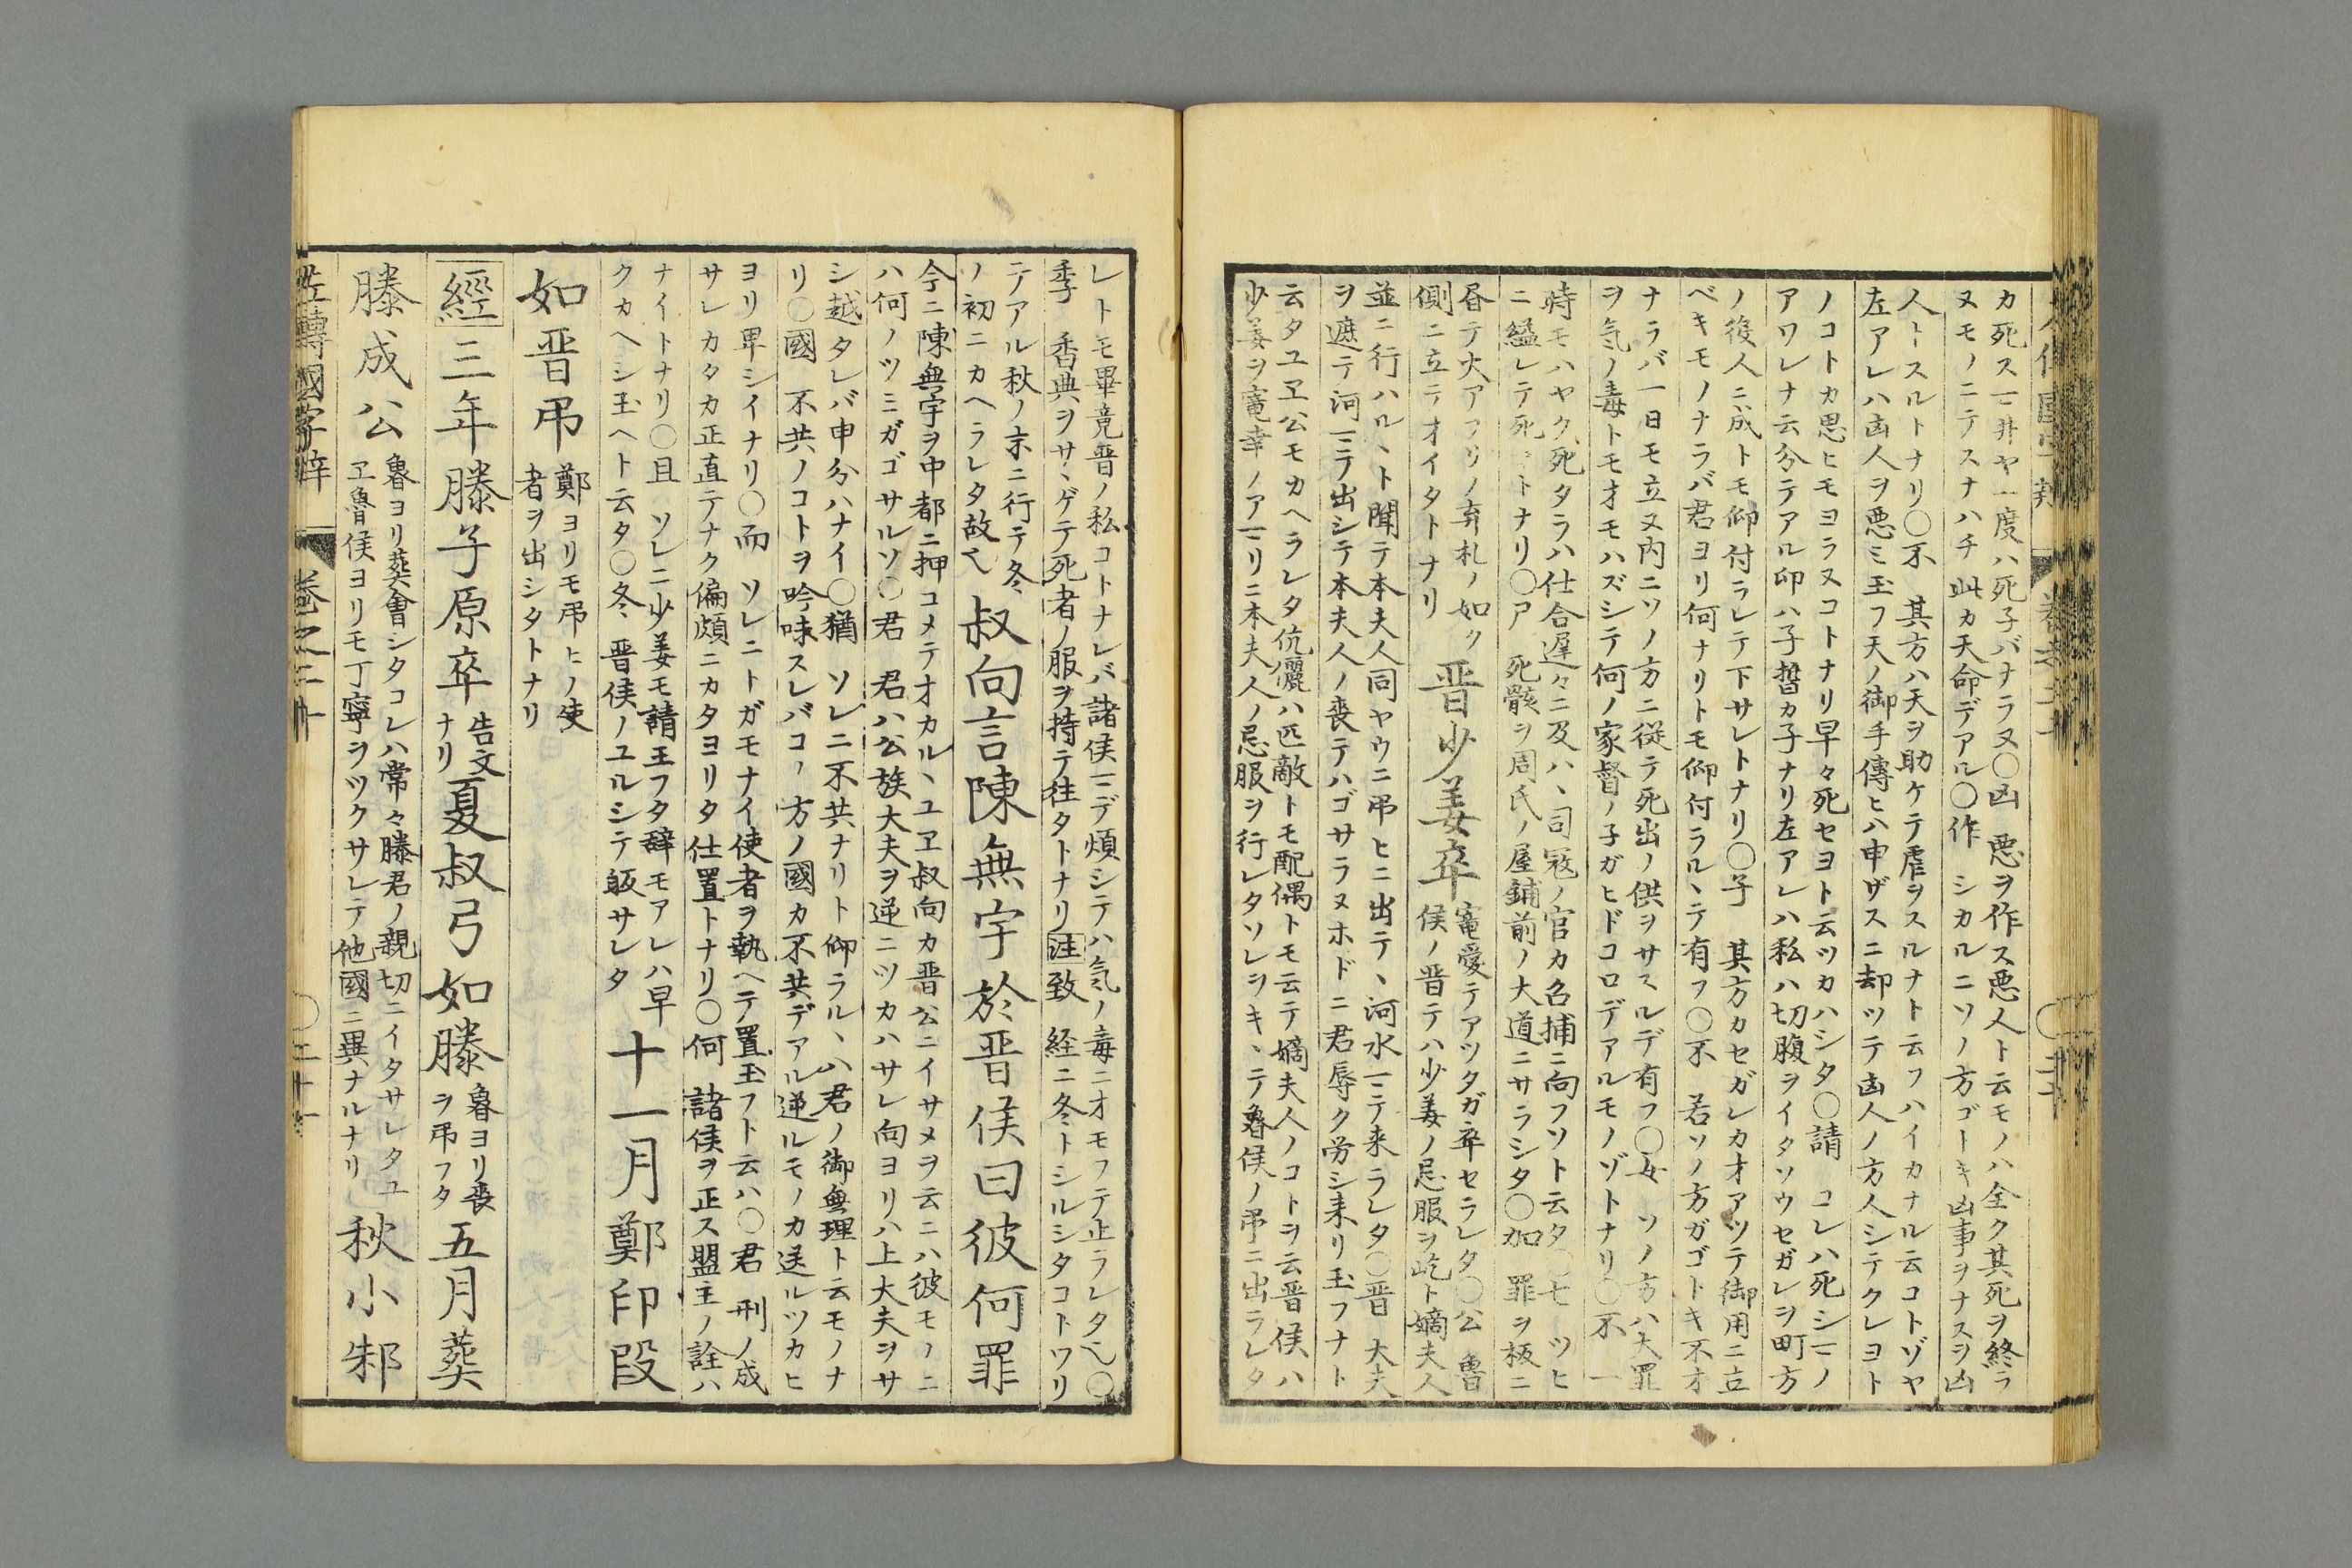 カ死ス一井ヤ一度ハ死子バナラヌ〇凶 悪ヲ作ス悪人ト云モノハ全ク其死ヲ終ラ
ヌモノニテスナハチ此カ天命デアル〇作 シカルニソノ方ゴーキ凶事ヲナスヲ凶
人ースルトナリ〇不 其方ハ天ヲ助ケテ虐ヲスルナト云フハイカナル云コトゾヤ
左アレハ凶人ヲ悪ミ玉フ天ノ御手傳ヒハ申ザスニ却ツテ凶人ノ方人シテクレヨト
ノコトカ思ヒモヨラヌコトナリ早々死セヨト云ツカハシタ〇請 コレハ死シ一ノ
アワレナ云分テアル印ハ子晳カ子ナリ左アレハ私ハ切腹ヲイタソウセガレヲ町方
ノ役人ニ成トモ仰付ラレテ下サレトナリ〇子 其方カセガレカオアツテ御用ニ立
ベキモノナラバ君ヨリ何ナリトモ仰付ラルヽテ有フ〇不 若ソノ方ガゴトキ不才
ナラバ一日モ立ヌ内ニソノ方ニ従テ死出ノ供ヲサスルデ有フ〇女 ソノ方ハ大罪
ヲ気ノ毒トモオモハズシテ何ノ家督ノ子ガヒドコロデアルモノゾトナリ〇不 一
時モハヤク死タラハ仕合遅々ニ及ハヽ司冦ノ官カ召捕ニ向フソト云タ〇七 ツヒ
ニ縊レテ死 トナリ〇ア 死骸ヲ周氏ノ屋鋪前ノ大道ニサラシタ〇加 罪ヲ板ニ
昏テ火アフリノ弃札ノ如ク 晋少姜卒 寵愛テアツタガ卒セラレタ〇公 魯
側ニ立テオイタトナリ 侯ノ晋テハ少姜ノ忌服ヲ屹ト嫡夫人
並ニ行ハルヽト聞テ本夫人同ヤウニ弔ヒニ出テヽ河水一テ来ラレタ〇晋 大夫
ヲ遮テ河一テ出シテ本夫人ノ喪テハゴサラヌホドニ君辱ク労シ来リ玉フナト
云タユヱ公モカヘラレタ伉儷ハ匹敵トモ配偶トモ云テ嫡夫人ノコトヲ云晋侯ハ
少姜ヲ寵幸ノア一リニ本夫人ノ忌服ヲ行レタソレヲキヽテ魯侯ノ弔ニ出ラレタ
レトモ畢竟晋ノ私コトナレバ諸侯一デ煩シテハ気ノ毒ニオモフテ止ラレタ〇
季 香典ヲサヽゲテ死者ノ服ヲ持テ往タトナリ注致 経ニ冬トシルシタコトワリ
テアル秋ノ末ニ行テ冬
ノ初ニカヘラレタ故 叔向言陳無宇於晋侯曰彼何罪
今ニ陳無宇ヲ中都ニ押コメテオカルヽユヱ叔向カ晋公ニイサメヲ云ニハ彼モノニ
ハ何ノツミガゴサルソ〇君 君ハ公族大夫ヲ逆ニツカハサレ向ヨリハ上大夫ヲサ
シ越タレバ申分ハナイ〇猶 ソレニ不共ナリト仰ラルヽハ君ノ御無理ト云モノナ
リ〇國 不共ノコトヲ吟味スレバコノ方ノ國カ不共デアル逆ルモノカ送ルツカヒ
ヨリ卑シイナリ〇而 ソレニトガモナイ使者ヲ執ヘテ置玉フト云ハ〇君 刑ノ成
サレカタカ正直テナク偏頗ニカタヨリタ仕置トナリ〇何 諸侯ヲ正ス盟主ノ詮ハ
ナイトナリ〇且 ソレニ少姜モ請玉フタ辞モアレハ早
クカヘシ玉ヘト云タ〇冬 晋侯ノユルシテ皈サレタ 十一月鄭印段
如晋弔 鄭ヨリモ弔ヒノ使
者ヲ出シタトナリ
經三年滕子原卒 告文
ナリ 夏叔弓如滕 魯ヨリ喪
ヲ弔フタ 五月葬
滕成公 魯ヨリ葬會シタコレハ常々滕君ノ親切ニイタサレタユ
ヱ魯侯ヨリモ丁寧ヲツクサレテ他國ニ異ナルナリ 秋小邾
左轉國字辨 巻之二十 〇二十一